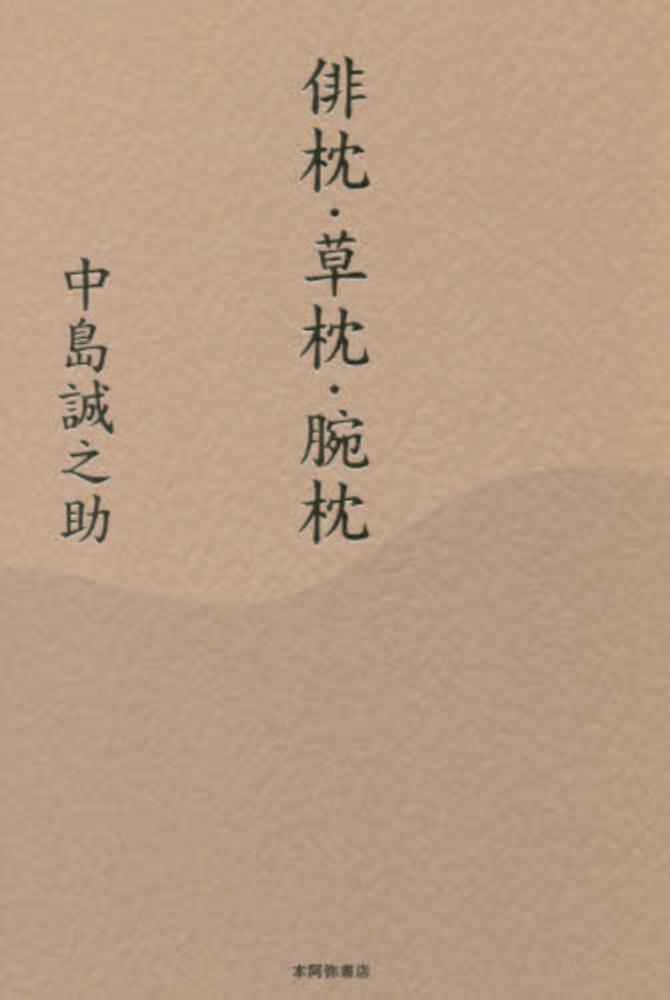 俳枕・草枕・腕枕
中島誠之助
本阿弥書店